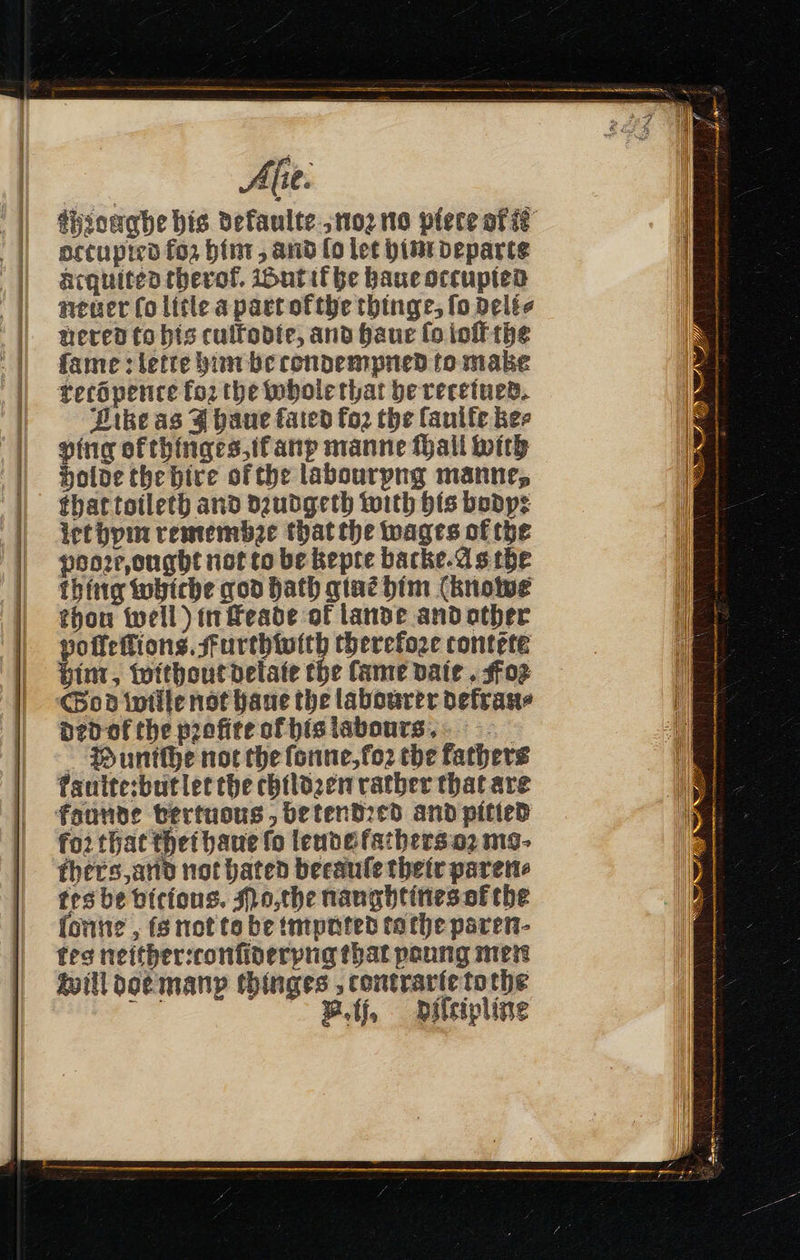 343
Asie.
throughe his defaulte, nor no piece of it
occupied for him, and so let him departe
acquited therof. But if he haue occupied
neuer so litle a part of the thinge, so deli-
uered to his custodie, and haue so lost the
same: lette him be condempned to make
recōpence for the whole that he receiued.
Like as I haue saied for the saulfe ke-
ping of thinges, if any manne shall with
holde the hire of the labouryng manne,
that toileth and drudgeth with his body:
let hym remembre that the wages of the
poore, ought not to be kepte backe. As the
thing whiche god hath giuē him (knowe
thou well) in steade of lande and other
possessions. Furthwith therefore contēte
him, without delaie the same daie. For
God wille not haue the labourer defrau-
ded of the profite of his labours.
Punishe not the sonne, for the fathers
faulte: but let the children rather that are
founde vertuous, be tendred and pitied
for that thei haue so leude fathers or mo-
thers, and not hated because their paren-
tes be vicious. No, the naughtines of the
sonne, is not to be imputed to the paren-
tes neither: consideryng that young men
will doe many thinges, contrarie to the
P.ij. discipline